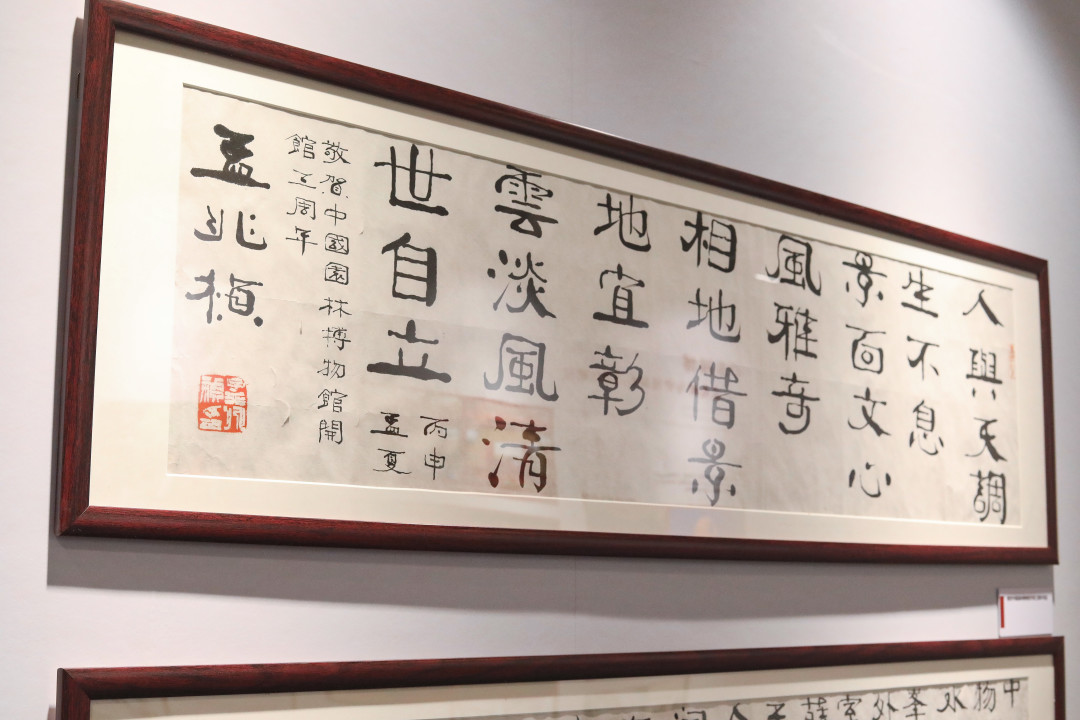 人與天調
生不息
景面文心
風雅奇
相地借景
地宜彰
雲淡風清
世自立
丙申
孟夏
敬賀中國園林博物館開
館三周年
孟兆禎
中
物
水
峯
外